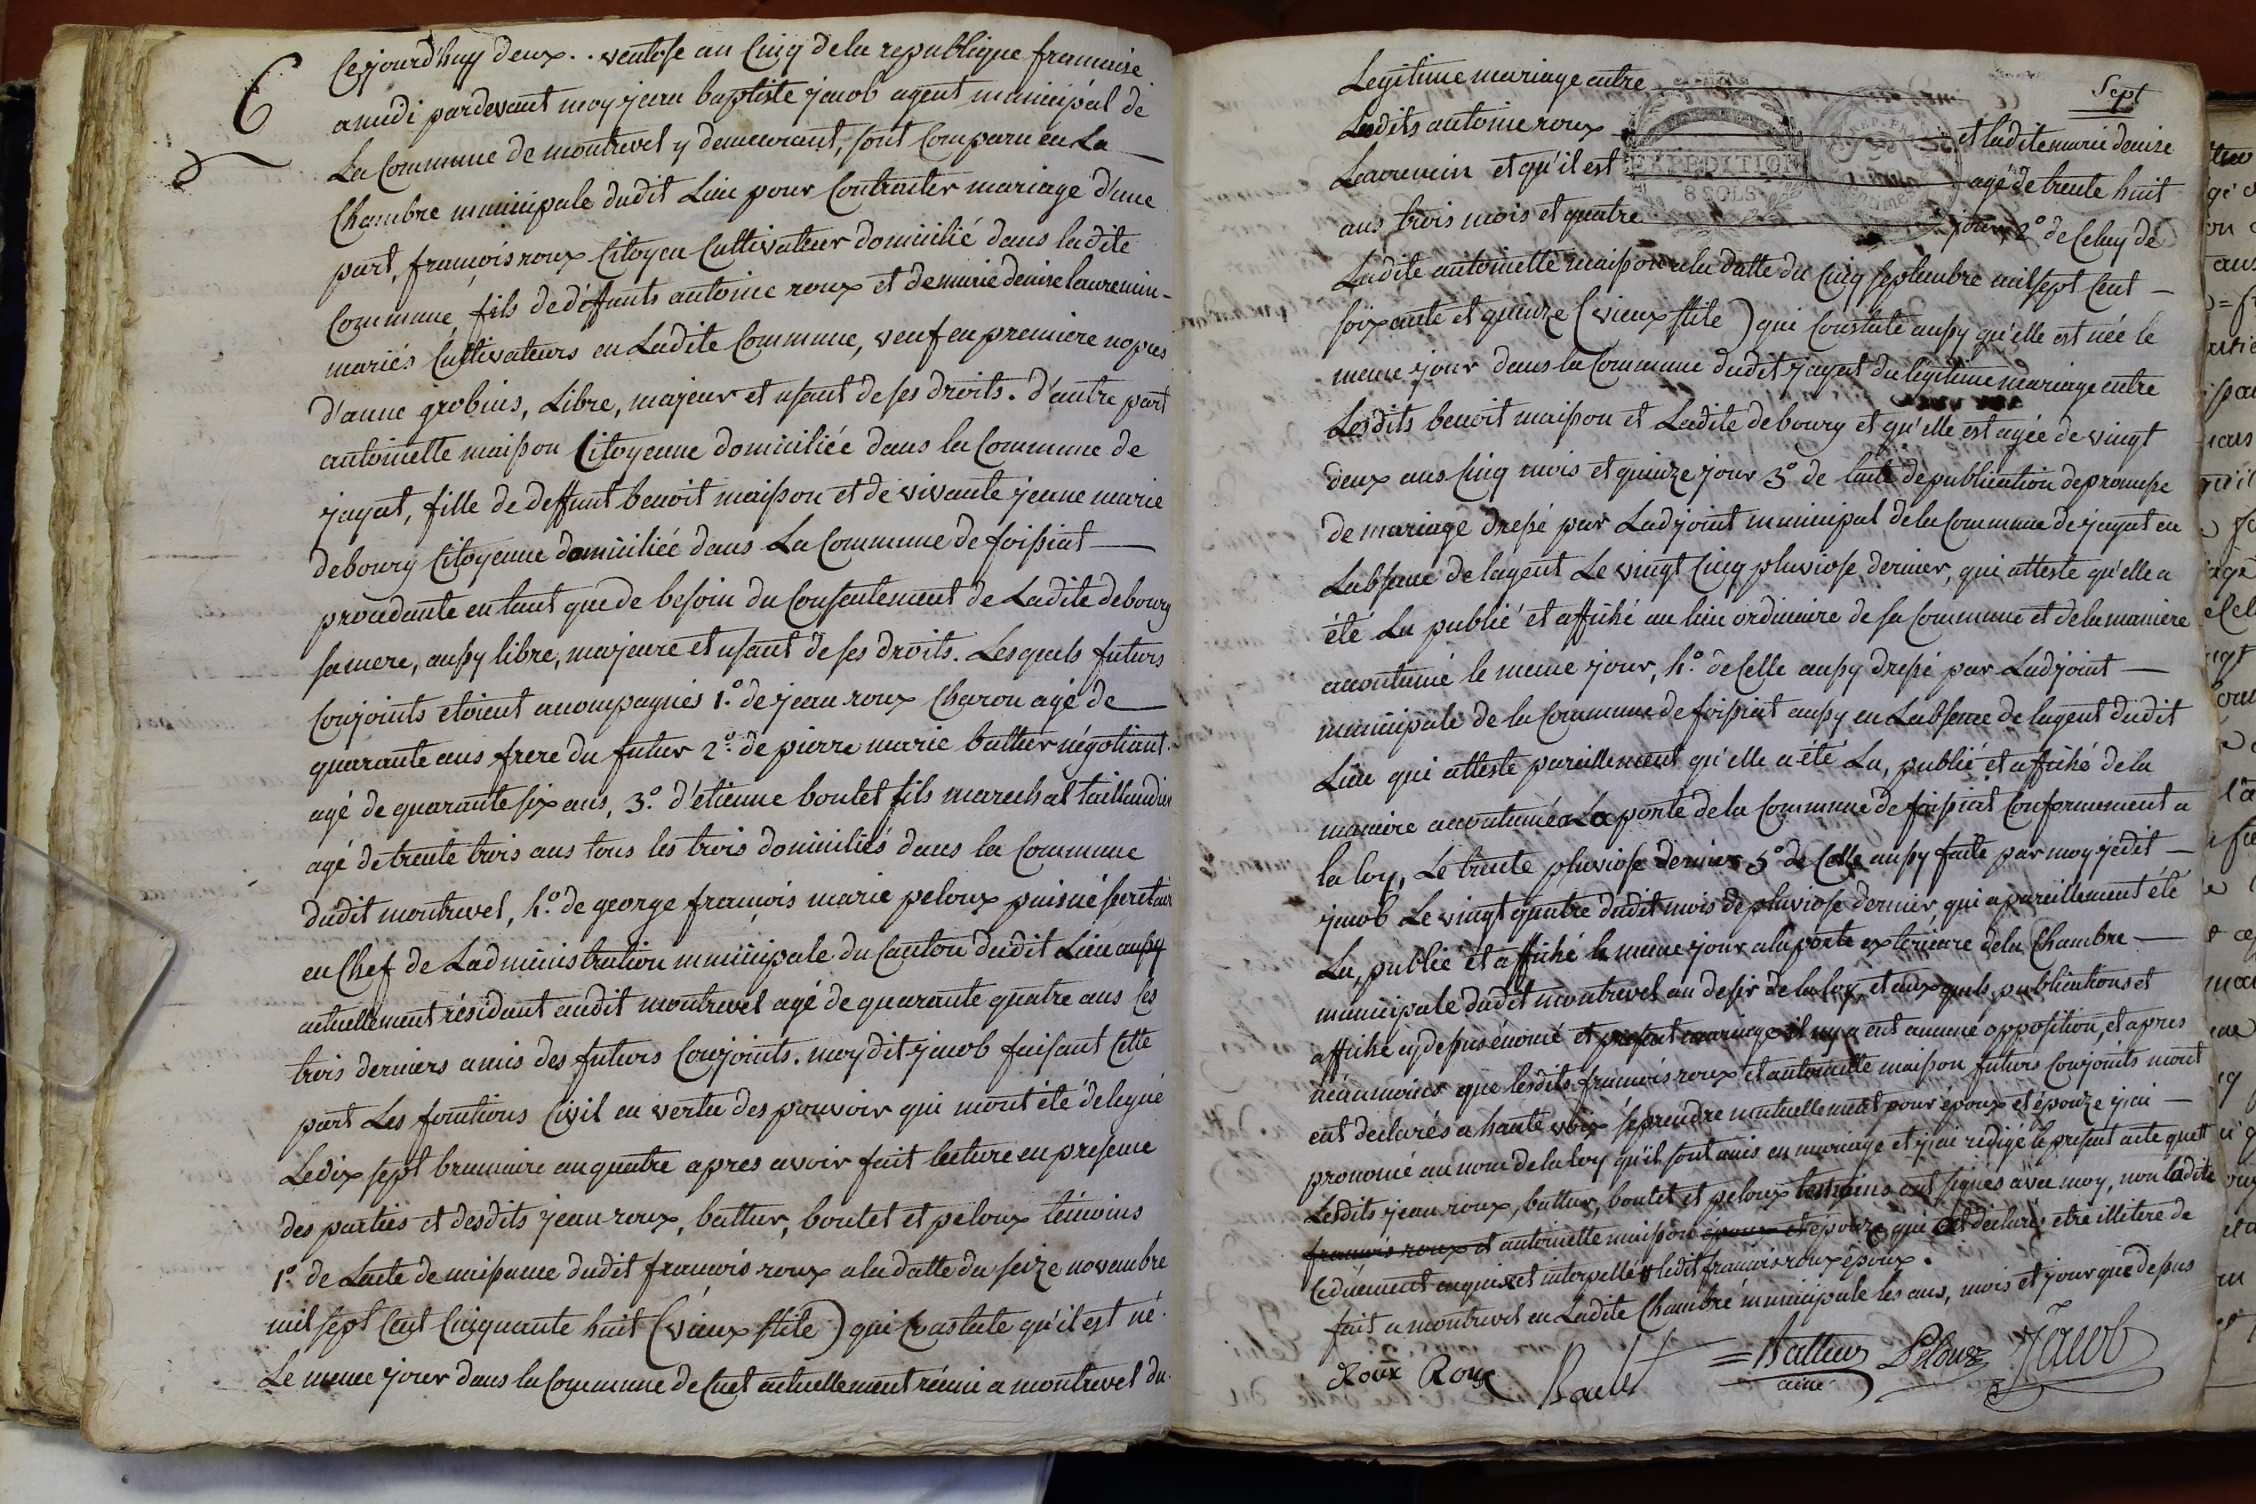 6
Cejourd'huy deux.. ventose an Cinq de la republique francaise
a midi pardevant moy jean baptiste jacob agent municipal de
La Commune de montrevel y demeurant, sont Comparu en La
Chambre municipale dudit Lieu pour Contracter mariage d'une
part, françois roux Citoyen Cultivateur domicilié dans ladite
Commune, fils de déffunts antoine roux et de marie denise lauremin-
mariés Cultivateurs en Ladite Commune, veuf en premiere nopces
d'anne grobius, Libre, majeur et usant de ses droits. d'autre part
antoinette maisson Citoyenne domiciliée dans la Commune de
jayat, fille de deffunt benoit maisson et de vivante jeane marie
debourg Citoyenne domiciliée dans La Commune de foissiat
procedante en tant que de besoin du Consentement de Ladite debourg
sa mere, aussy libre, majeure et usant de ses droits. Lesquels futurs
Conjoints etoient acompagnés 1.º de jean roux Charon agé de
quarante ans frere du futur 2.º de pierre marie battur négotiant
agé de quarante six ans, 3.º d'étienne boutet fils marechal taillandier
agé de trente trois ans tous les trois domiciliés dans la Commune
dudit montrevel, 4.º de george françois marie peloux puisné secretaire
en Chef de Ladministration municipale du Canton dudit Lieu aussy
actuellement résidant audit montrevel agé de quarante quatre ans les
trois derniers amis des futurs Conjoints. moydit jacob faisant Cette
part Les fonctions Civil en vertu des pouvoir qui mont été délegué
Le dix sept brumaire an quatre apres avoir fait lecture en presence
des parties et desdits jean roux, battur, boutet et peloux témoins
1.º de Lacte de naissance dudit francois roux a la datte du seize novembre
mil sept Cent Cinquante huit (vieux stile) qui Constate qu'il est né
Le meme jour dans la Commune de Cuet actuellement réuni a montrevel du
Sept
Legitime mariage entre
Lesdits antoine roux et ladite marie denise
Lauremin et qu'il est agé de trente huit
EXPÉDITION
8 SOLS
ans trois mois et quatre jours 2º de Celuy de
Ladite antoinette maisson a la datte du Cinq septembre mil sept Cent
soixante et quinze (vieux stile) qui Constate aussy qu'elle est née le
meme jour dans la Commune dudit jayat du legitime mariage entre
Lesdits benoit maisson et Ladite debourg et qu'elle est agée de vingt
deux ans Cinq mois et quinze jour 3º de lacte de publication de promesse
de mariage dressé par Ladjoint municipal de la Commune de jayat en
Labsence de lagent Le vingt Cinq pluviose dernier, qui atteste qu'elle a
été Lu publié et affiché au lieu ordinaire de sa Commune et de la maniere
acoutumé le meme jour, 4º. de Celle aussy dressé par Ladjoint
municipale de la Commune de foissiat aussy en Labsence de lagent dudit
Lieu qui atteste pareillement qu'elle a été Lu, publié et affiché de la
maniere acoutumé a La porte de la Commune de foissiat Conformement a
la loy, Le trente pluviose dernier 5º de Celle aussy faite par moy jedit
jacob Le vingt quatre dudit mois de pluviose dernier, qui a pareillement été
Lu, publié et affiché le meme jour a la porte exterieure de la Chambre
municipale dudit montrevel au desir de la loy, et aux quels publications et
affiche cy dessus énoncé et present mariage il ny a eut aucune opposition, et apres
néanmoins que lesdits francois roux et antoinette maisson futurs Conjoints mont
eut declarés a haute voix se prendre mutuellement pour époux et épouze j'ai
prononcé au nom de la loy qu'il sont unis en mariage et j'ai rédigé le present acte que
Lesdits jean roux, battur, boutet et peloux temoins ont signés avec moy, non ladite
francois roux et antoinette maisson epoux et épouze qui ont déclarés etre illitere de
Ce duement enquis et interpellé ledit francois roux époux.
fait a montrevel en Ladite Chambre municipale les ans, mois et jour que dessus
Roux Roux Boutet Battur Peloux Jacob
ainé